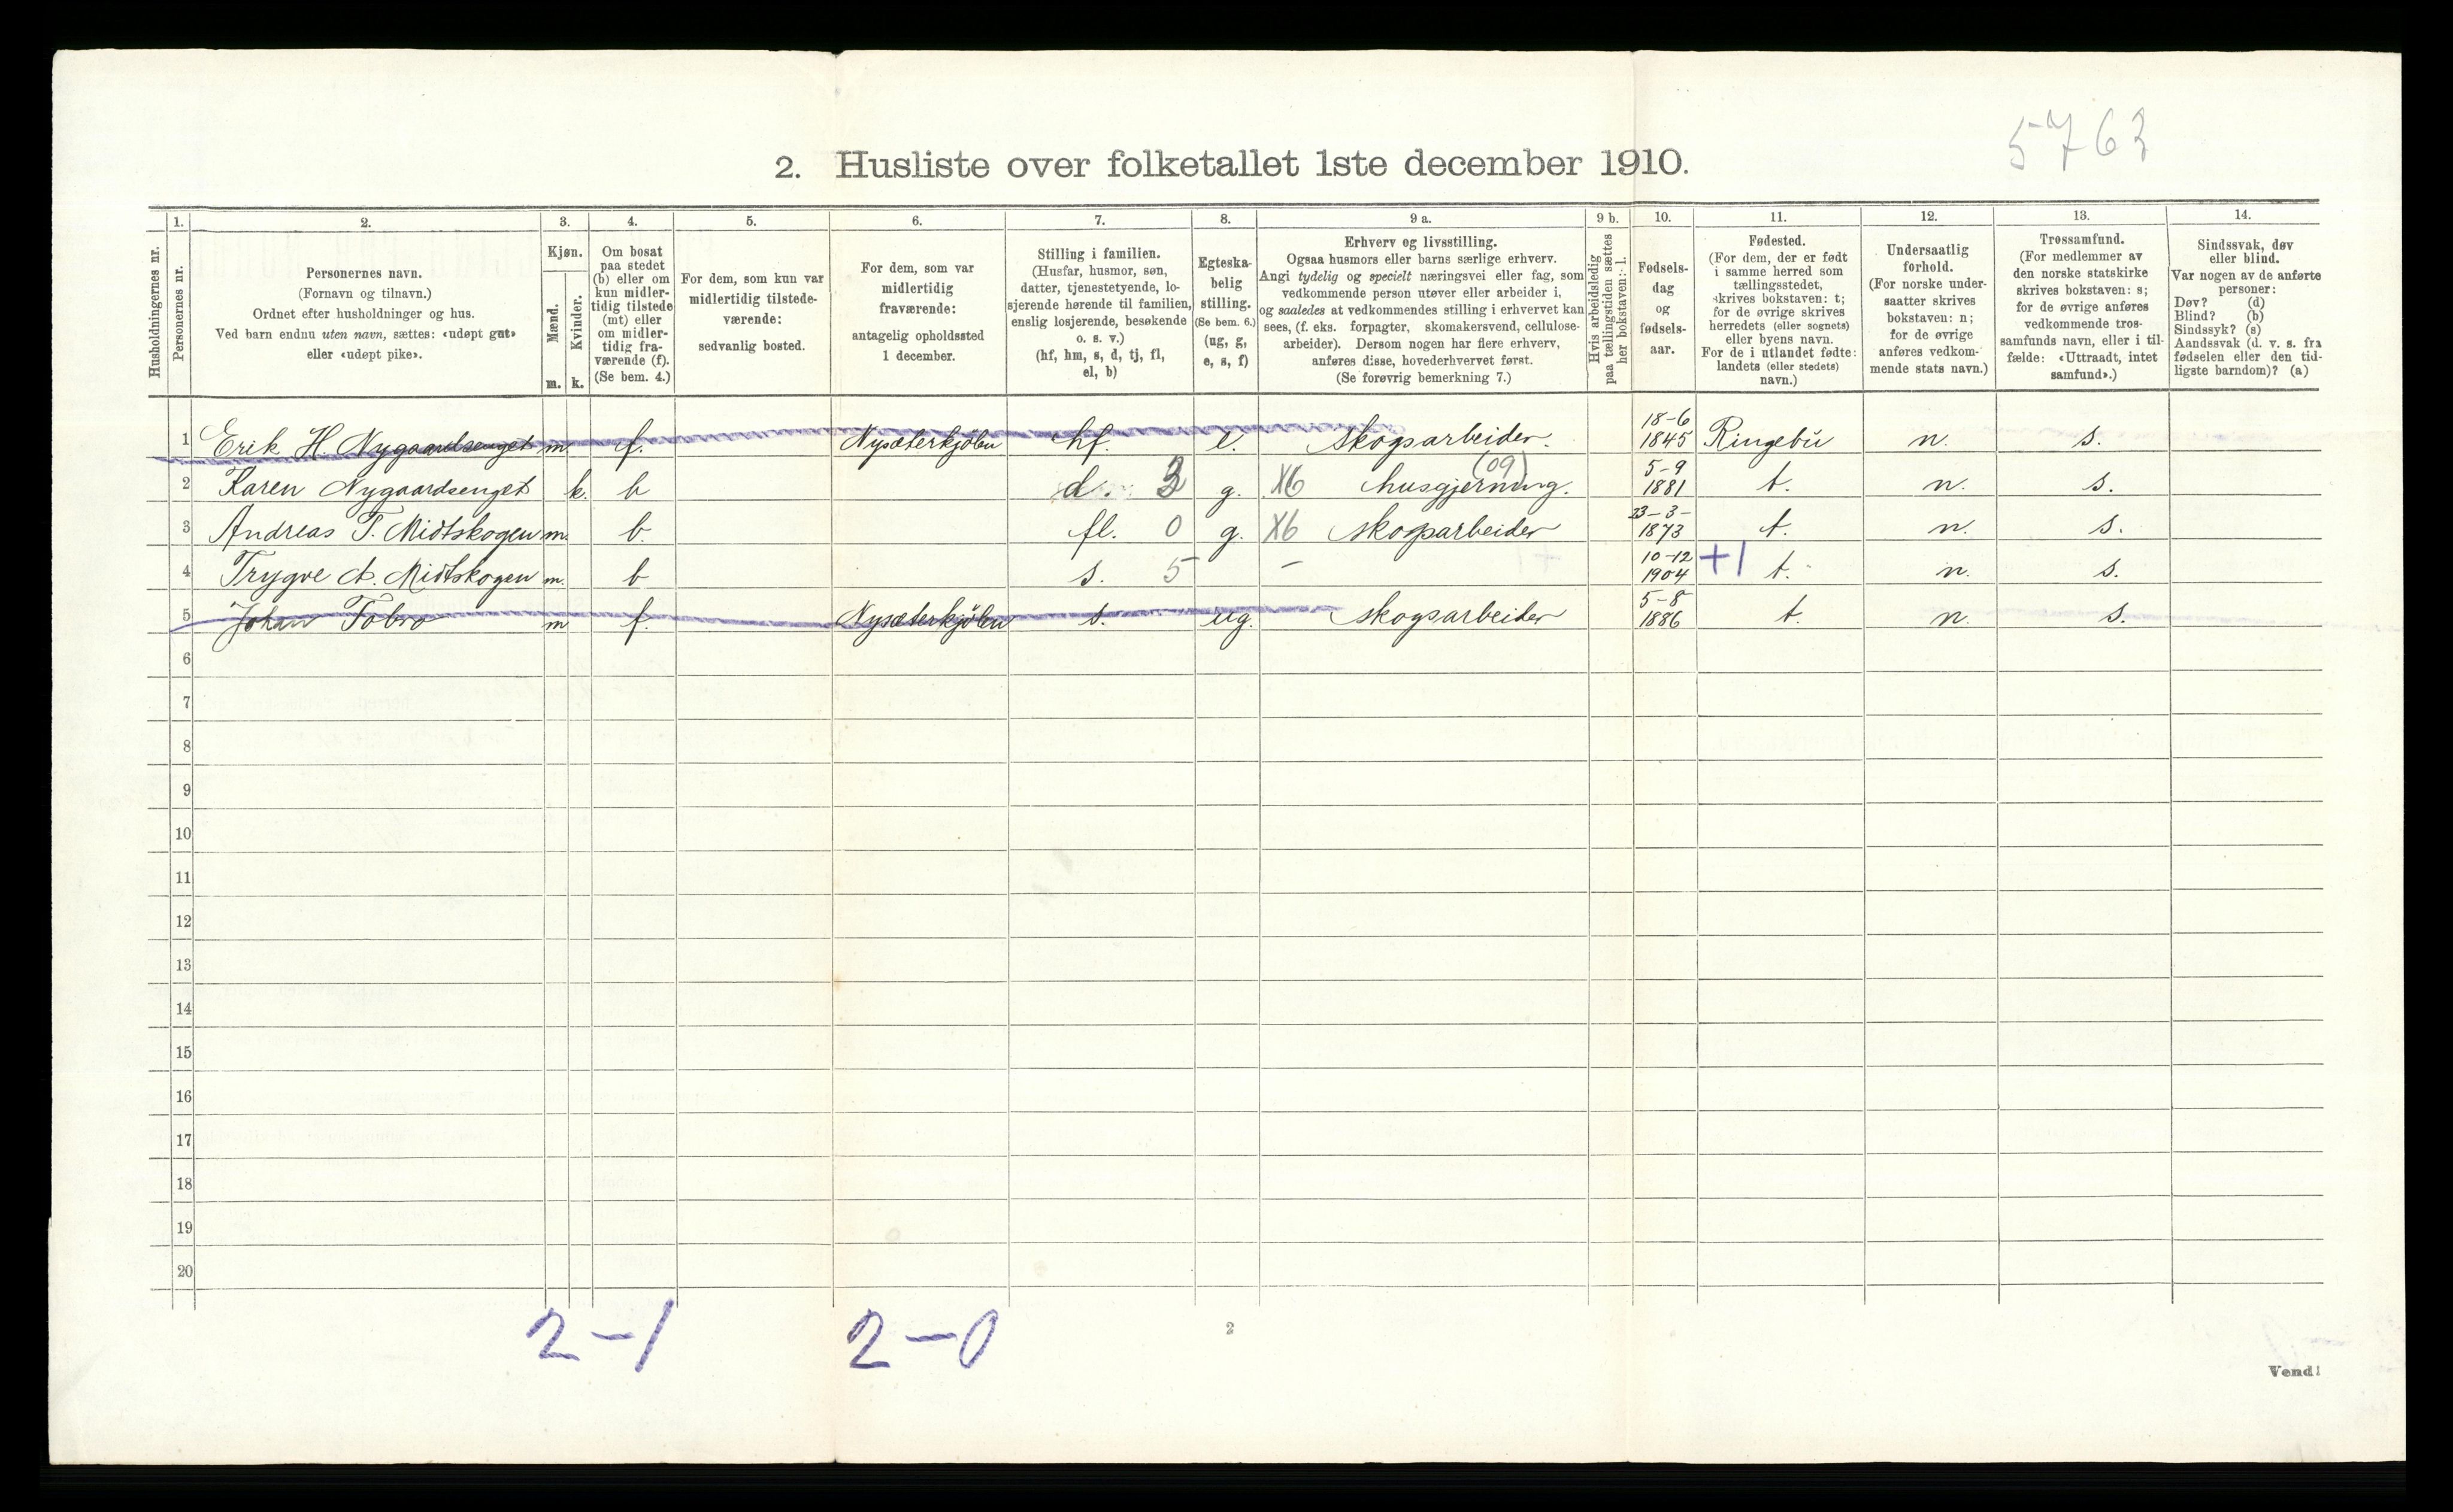 5763
2. Husliste over folketallet 1ste december 1910.
Husholdningernes nr.
1.
Personernes nr.
2.
Personernes navn.
(Fornavn og tilnavn.)
Ordnet efter husholdninger og hus.
Ved barn endnu uten navn, sættes: «udøpt gut»
eller «udøpt pike».
3.
Kjøn.
Mænd.
Kvinder.
m. k.
4.
Om bosat
paa stedet
(b) eller om
kun midler-
tidig tilstede
(mt) eller
om midler-
tidig fra-
værende (f).
(Se bem. 4.)
5.
For dem, som kun var
midlertidig tilstede-
værende:
sedvanlig bosted.
6.
For dem, som var
midlertidig
fraværende:
antagelig opholdssted
1 december.
7.
Stilling i familien.
(Husfar, husmor, søn,
datter, tjenestetyende, lo-
sjerende hørende til familien,
enslig losjerende, besøkende
o. s. v.)
(hf, hm, s, d, tj, fl,
el, b)
8.
Egteska-
belig
stilling.
(Se bem. 6.)
(ug, g,
e, s, f)
9 a.
Erhverv og livsstilling.
Ogsaa husmors eller barns særlige erhverv.
Angi tydelig og specielt næringsvei eller fag, som
vedkommende person utøver eller arbeider i,
og saaledes at vedkommendes stilling i erhvervet kan
sees, (f. eks. forpagter, skomakersvend, cellulose-
arbeider). Dersom nogen har flere erhverv,
anføres disse, hovederhvervet først.
(Se forøvrig bemerkning 7.)
9 b.
Hvis arbeidsledig
paa tællingstiden sættes
her bokstaven: l.
10.
Fødsels-
dag
og
fødsels-
aar.
11.
Fødested.
(For dem, der er født
i samme herred som
tællingsstedet,
skrives bokstaven: t;
for de øvrige skrives
herredets (eller sognets)
eller byens navn.
For de i utlandet fødte:
landets (eller stedets)
navn.)
12.
Undersaatlig
forhold.
(For norske under-
saatter skrives
bokstaven: n;
for de øvrige
anføres vedkom-
mende stats navn.)
13.
Trossamfund.
(For medlemmer av
den norske statskirke
skrives bokstaven: s;
for de øvrige anføres
vedkommende tros-
samfunds navn, eller i til-
fælde: «Uttraadt, intet
samfund».)
14.
Sindssvak, døv
eller blind.
Var nogen av de anførte
personer:
Døv? (d)
Blind? (b)
Sindssyk? (s)
Aandssvak (d. v. s. fra
fødselen eller den tid-
ligste barndom)? (a)
1 Erik H. Nygaardsenget m. f. Nysæterkjølen hf. e. skogsarbeider. 18-6 1845 Ringebu n. s.
2 Karen Nygaardsenget k. b d. 3 g. X6 husgjerning. (09) 5-9 1881 t. n. s.
3 Andreas T. Midtskogen m. b. fl. 0 g. X6 skogsarbeider 23-3- 1873 t. n. s.
4 Trygve A. Midtskogen m. b s. 5 - 10-12 1904 +1 t. n. s.
5 Johan Tobro m f. Nysæterkjølen s. ug. skogsarbeider 5-8 1886 t. n. s.
6
7
8
9
10
11
12
13
14
15
16
17
18
19
20
2-1 2-0
2
Vend!